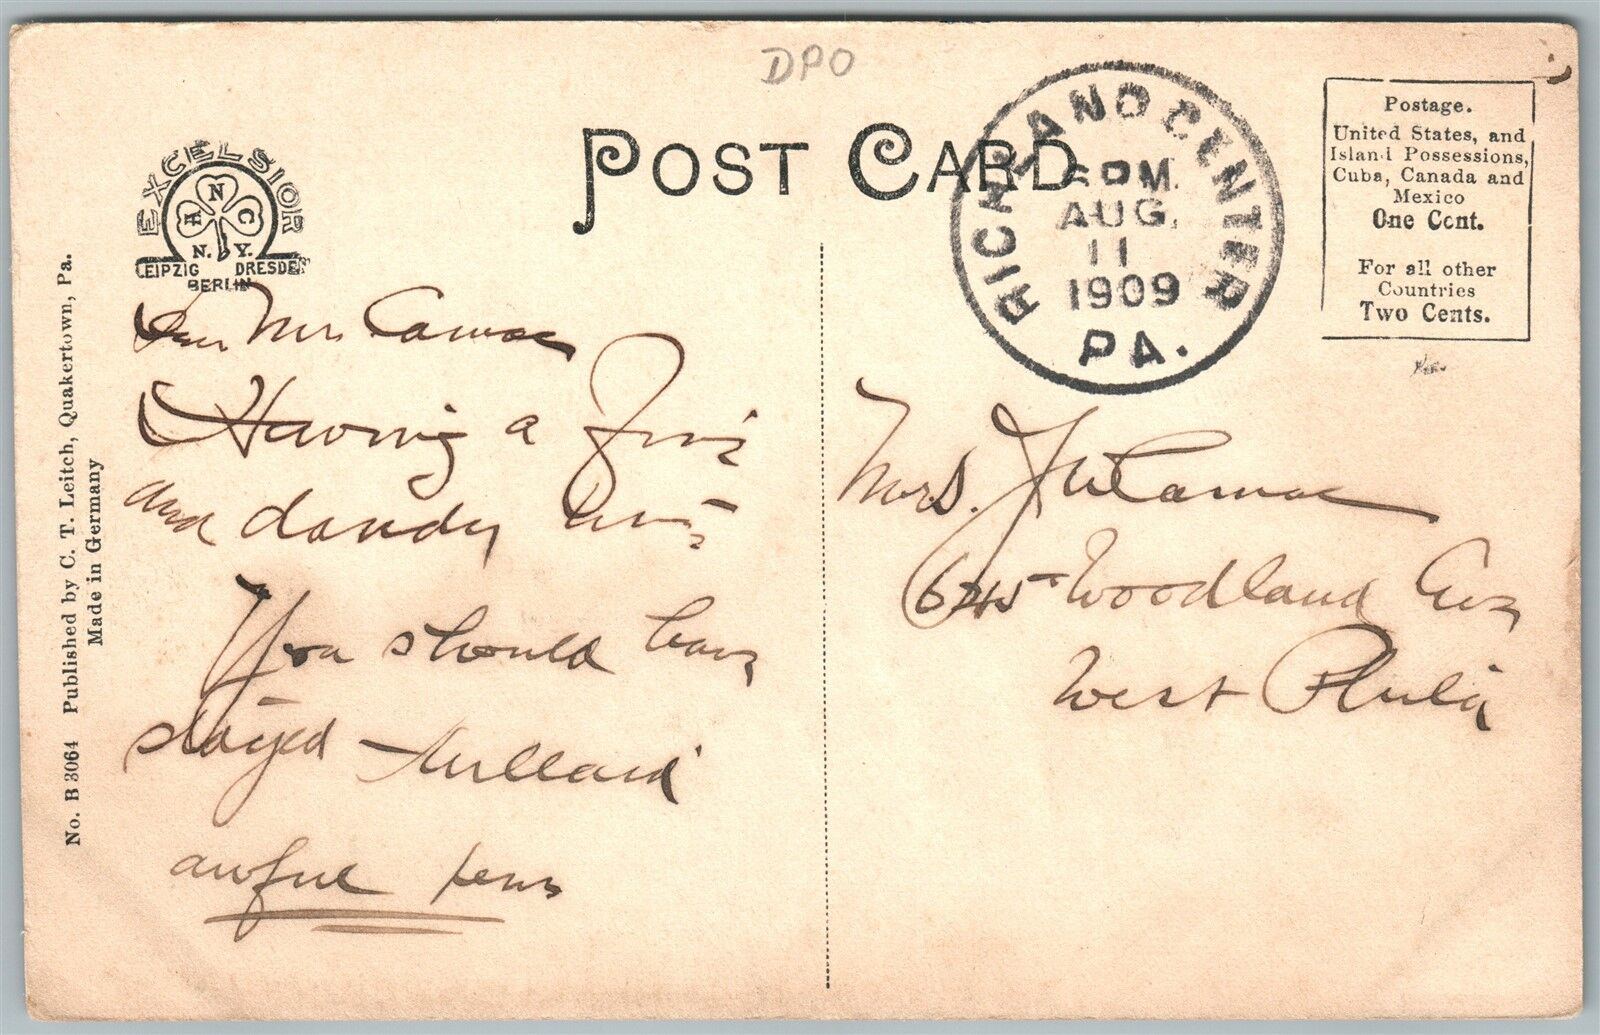 DPO
POST CARD
EXCELSIOR
ANC
N. Y.
LEIPZIG DRESDEN
BERLIN
RICHLAND CENTER
6 PM.
AUG.
11
1909
PA.
Postage.
United States, and
Island Possessions,
Cuba, Canada and
Mexico
One Cent.
For all other
Countries
Two Cents.
No. B 3064 Published by C. T. Leitch, Quakertown, Pa.
Made in Germany
Dear Mrs Camac
Having a fine
and dandy time
You should have
stayed
awful pens
Mrs. J W Camac
6245 Woodland Ave
West Phila